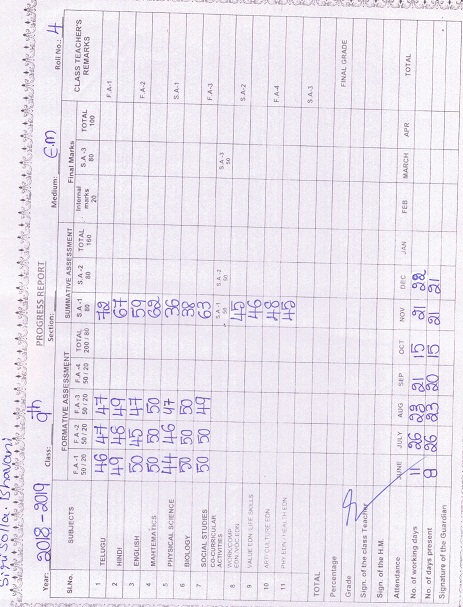 Sigisolla. Bhavani
PROGRESS REPORT
Year: 2018-2019 Class: 9th Section: Medium: E.M Roll No.: 4
Sl.No. SUBJECTS FORMATIVE ASSESSMENT SUMMATIVE ASSESSMENT Final Marks CLASS TEACHER'S REMARKS
F.A -1 50 / 20 F.A -2 50 / 20 F.A -3 50 / 20 F.A -4 50 / 20 TOTAL 200 / 80 S.A -1 80 S.A -2 80 TOTAL 160 Internal marks 20 S.A -3 80 TOTAL 100
1 TELUGU 46 47 47 72 F.A-1
2 HINDI 49 48 49 67
3 ENGLISH 50 45 47 59 F.A-2
4 MAHTEMATICS 50 50 50 62
5 PHYSICAL SCIENCE 44 46 47 36 S.A-1
6 BIOLOGY 50 50 50 38
7 SOCIAL STUDIES 50 50 49 63 F.A-3
CO-CURRICULAR ACTIVITIES S.A -1 50 S.A -2 50 S.A -3 50
8 WORK EXP. EDN/VOC EDN 45 S.A-2
9 VALUE EDN LIFE SKILLS 46
10 ART CULTURE EDN 48 F.A-4
11 PHY EDN HEALTH EDN 45
TOTAL S.A-3
Percentage
Grade FINAL GRADE
Sign. of the class Teacher
Sign. of the H.M
Attendance JUNE JULY AUG SEP OCT NOV DEC JAN FEB MARCH APR TOTAL
No. of working days 11 26 23 21 15 21 22
No. of days present 8 26 23 20 15 21 21
Signature of the Guardian